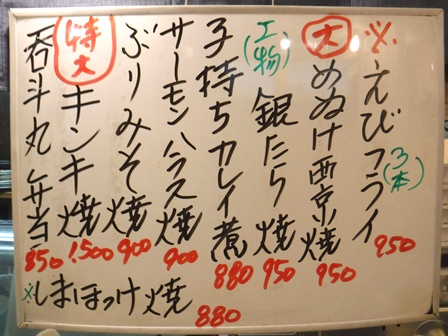 ※えびフライ(3本) 950
大 めぬけ西京焼 950
(上物)銀たら焼 950
子持ちカレイ煮 880
サーモンハラス焼 900
ぶりみそ焼 900
特大 キンキ焼 1,500
呑斗丸弁当 850
※しまほっけ焼 880